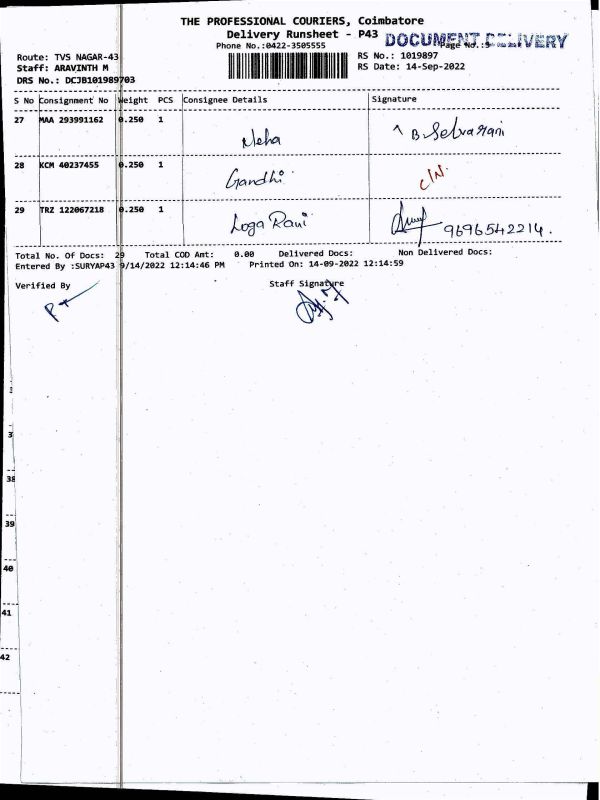 THE PROFESSIONAL COURIERS, Coimbatore
Delivery Runsheet - P43
DOCUMENT DELIVERY
Phone No.:0422-3505555 Page No.:3
Route: TVS NAGAR-43 RS No.: 1019897
Staff: ARAVINTH M RS Date: 14-Sep-2022
DRS No.: DCJB101989703
S No Consignment No Weight PCS Consignee Details Signature
27 MAA 293991162 0.250 1 Neha B. Selvarani
28 KCM 40237455 0.250 1 Gandhi
29 TRZ 122067218 0.250 1 Loga Rani 9696542214.
Total No. Of Docs: 29 Total COD Amt: 0.00 Delivered Docs: Non Delivered Docs:
Entered By :SURYAP43 9/14/2022 12:14:46 PM Printed On: 14-09-2022 12:14:59
Verified By Staff Signature
38
39
40
41
42